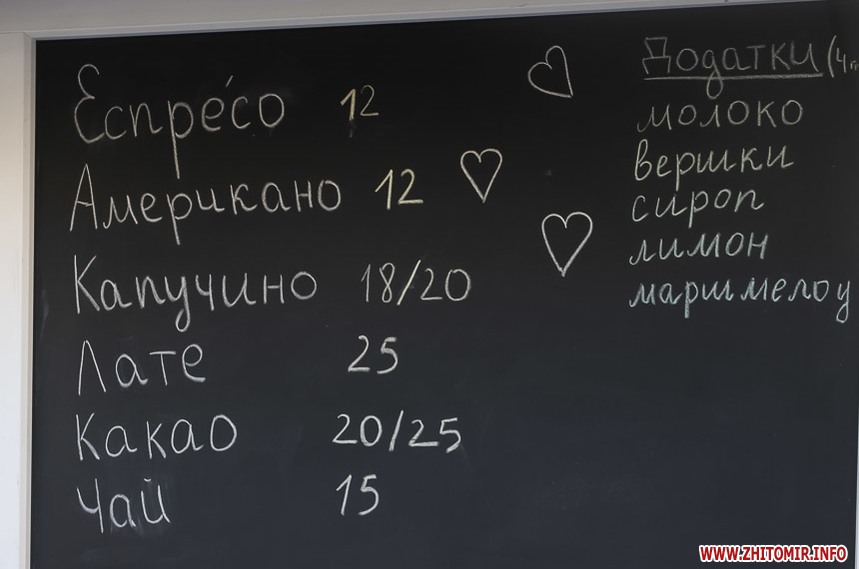 Еспре́со 12
Американо 12
Капучино 18/20
Лате 25
Какао 20/25
Чай 15
Додатки (4
молоко
вершки
сироп
лимон
маршмелоу
WWW.ZHITOMIR.INFO